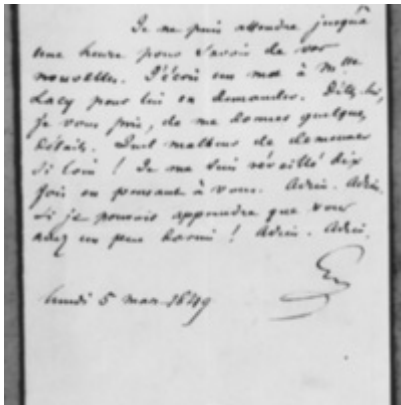 Je ne puis attendre jusqu'à
une heure pour savoir de vos
nouvelles. J'écris un mot à Mme
Lacy pour lui en demander. Dites-lui,
je vous prie, de me donner quelques
détails. Quel malheur de demeurer
si loin ! Je me suis réveillé dix
fois en pensant à vous. Adieu. Adieu.
Si je pouvais apprendre que vous
avez un peu dormi ! Adieu. Adieu.
lundi 5 mars 1849